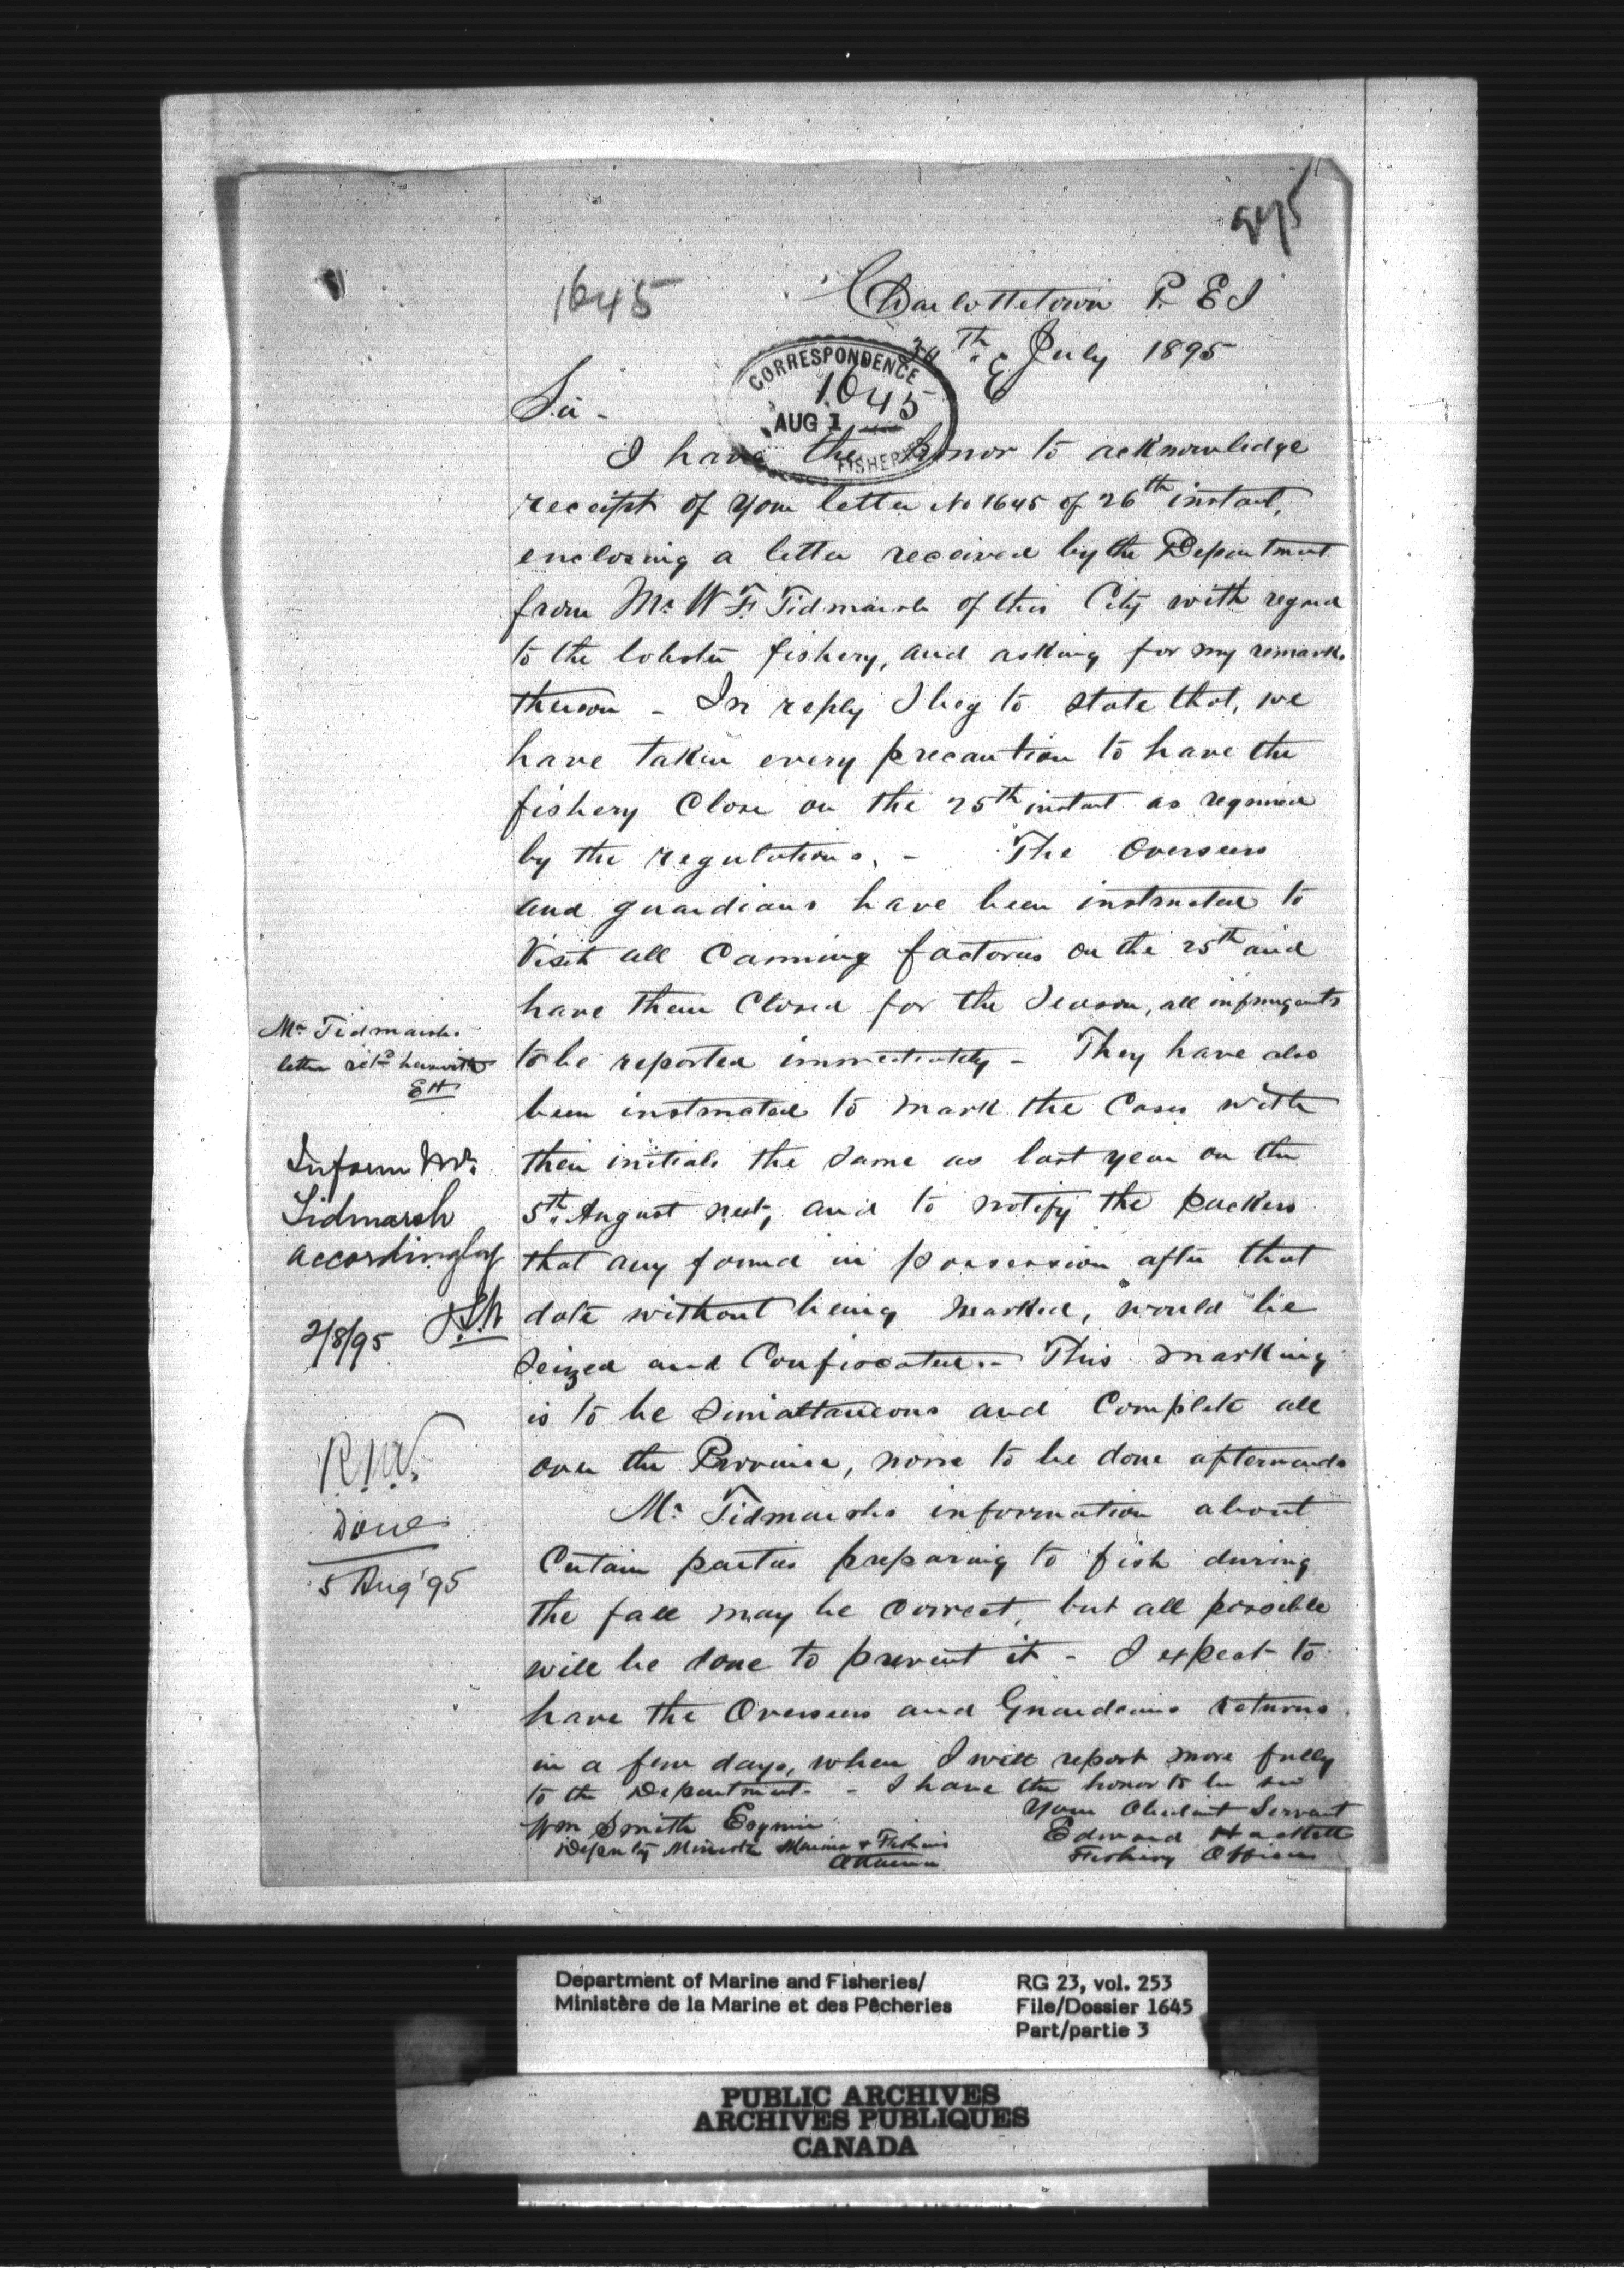 275
1645
Charlottetown P. E I
30th July 1895
CORRESPONDENCE
1645
AUG 1
FISHERIES
Sir -
I have the honor to acknowledge
receipt of your letter No 1645 of 26th instant,
enclosing a letter received by the Department
from Mr W F. Tidmarsh of this City with regard
to the lobster fishery, and asking for my remarks
thereon - In reply I beg to state that, we
have taken every precaution to have the
fishery Close on the 25th instant as required
by the regulations. - The Overseers
and guardians have been instructed to
Visit all Canning factories on the 25th and
have them Closed for the Season, all infringents
to be reported immediately - They have also
been instructed to mark the Cases with
their initials the same as last year on the
5th August next, and to notify the packers
that any found in possession after that
date without being marked, would be
Seized and Confiscated. - This marking
is to be Simultaneous and Complete all
over the Province, none to be done afterwards
Mr Tidmarshs information about
Certain parties preparing to fish during
the fall may be correct, but all possible
will be done to prevent it - I expect to
have the Overseers and Guardians returns
in a few days, when I will report more fully
to the Department. - I have the honor to be Sir
Your Obedient Servant
Edward Hackett
Fishery Officer
Wm Smith Esquire
Deputy Minister Marine & Fisheries
Ottawa
Mr Tidmarshs
letter retd herewith
EH
Inform Mr.
Tidmarsh
accordingly
2/8/95
R.W.
Done
5 Aug '95
Department of Marine and Fisheries/
Ministère de la Marine et des Pêcheries
RG 23, vol. 253
File/Dossier 1645
Part/partie 3
PUBLIC ARCHIVES
ARCHIVES PUBLIQUES
CANADA